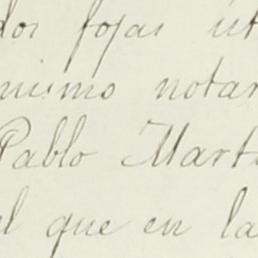 dos fojas út
mismo notar
Pablo Mart
el que en la